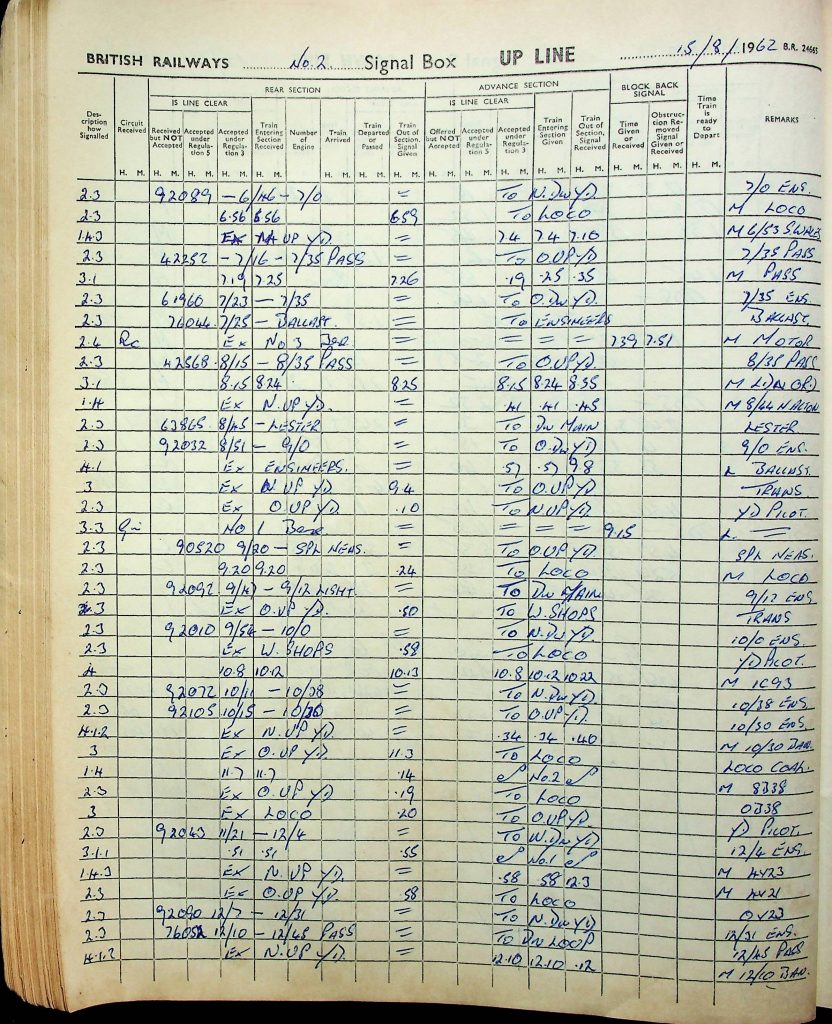 BRITISH RAILWAYS No. 2. Signal Box UP LINE 15/8/1962 B.R. 24663
REAR SECTION ADVANCE SECTION BLOCK BACK SIGNAL
IS LINE CLEAR IS LINE CLEAR
Description how Signalled Circuit Received Received but NOT Accepted Accepted under Regulation 5 Accepted under Regulation 3 Train Entering Section Received Number of Engine Train Arrived Train Departed or Passed Train Out of Section, Signal Given Offered but NOT Accepted Accepted under Regulation 5 Accepted under Regulation 3 Train Entering Section Given Train Out of Section, Signal Received Time Given or Received Obstruction Removed Signal Given or Received Time Train is ready to Depart REMARKS
H. M. H. M. H. M. H. M. H. M. H. M. H. M. H. M. H. M. H. M. H. M. H. M. H. M. H. M. H. M. H. M.
2.3 92089 - 6/46 - 7/0 = TO N. DN YD. 7/0 ENS.
2.3 6.56 6.56 6 59 TO LOCO M LOCO
1.4.3 EX UP YD. = 7.4 7.4 7.10 M 6/53
2.3 42252 - 7/16 - 7/35 PASS = TO O.UP YD 7/35 PASS
3.1 7.19 7.25 7.26 .19 .25 .35 M PASS
2.3 61960 7/23 - 7/35 = TO O. DN YD. 7/35 ENS.
2.3 76044 7/25 - BALLAST. = TO ENGINEERS BALLAST.
2.4 Rc EX NO 3 = = = = 7 39 7.51 M MOTOR
2.3 42568 8/15 - 8/35 PASS = TO O.UP YD. 8/35 PASS
3.1 8.15 8 24 8 25 8.15 8.24 8.35 M
1.4 EX N. UP YD. = .41 .41 .45 M 8/44
2.3 63865 8/45 - LESTER = TO DN MAIN LESTER
2.3 92032 8/51 - 9/0 = TO O. DN YD 9/0 ENS.
4.1 EX ENGINEERS. = .57 .57 9 8 L BALLAST.
3 EX N. UP YD. 9.4 TO O.UP YD. TRANS
2.3 EX O.UP YD. .10 TO N.UP YD. YD PILOT.
3.3 NO 1 = = = = 9.15 L. =
2.3 90520 9/20 - SPL NEAS. = TO O.UP YD. SPL NEAS.
2.3 9.20 9.20 .24 TO LOCO M LOCO
2.3 92092 - 9/12 LIGHT. = TO DN MAIN 9/12 ENS
2.3 EX O.UP YD. .50 TO W. SHOPS TRANS
2.3 92010 9/54 - 10/0 = TO N. DN YD. 10/0 ENS.
2.3 EX W. SHOPS .58 TO LOCO YD PILOT.
4 10.8 10.12 10.13 10.8 10.12 10.22 M 1C93
2.3 92072 10/11 - 10/38 = TO N. DN YD. 10/38 ENS
2.3 92105 10/15 - 10/30 = TO O.UP YD. 10/30 ENS.
4.1.2 EX N. UP YD = .34 .34 .40 M 10/30
3 EX O. UP YD. 11.3 TO LOCO LOCO COAL.
1.4 11.7 11.7 .14 No.2 M 8B38
2.3 EX O. UP YD .19 TO LOCO 0B38
3 EX LOCO .20 TO O.UP YD YD PILOT.
2.3 92043 11/21 - 12/4 = TO W. DN YD 12/4 ENS.
3.1.1 .51 .51 .55 No.1 M 4V23
1.4.3 EX N. UP YD. = .58 .58 12.3 M 4V21
2.3 EX O. UP YD. .58 TO LOCO 0V23
2.3 92090 12/7 - 12/31 = TO N. DN YD. 12/31 ENS.
2.3 76052 12/10 - 12/45 PASS = TO DN LOOP 12/45 PASS
4.1.2 EX N. UP YD. = 12.10 12.10 .12 M 12/10